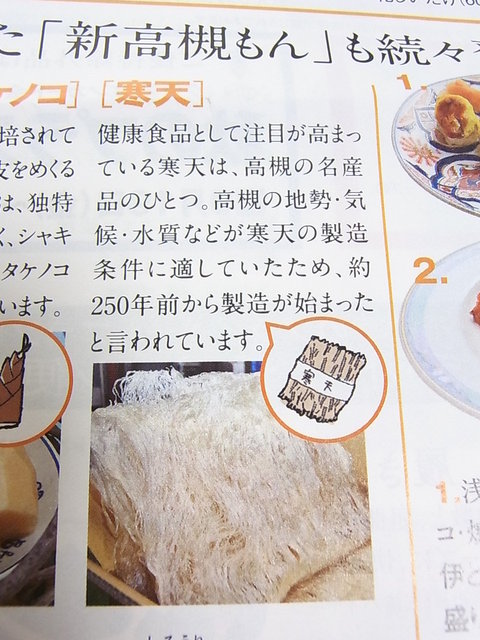 た「新高槻もん」も続々
ケノコ] [寒天]
培されて
皮をめくる
は、独特
く、シャキ
タケノコ
います。
健康食品として注目が高まっ
ている寒天は、高槻の名産
品のひとつ。高槻の地勢・気
候・水質などが寒天の製造
条件に適していたため、約
250年前から製造が始まった
と言われています。
寒天
1.
2.
1.浅
コ・焼
伊と
盛り